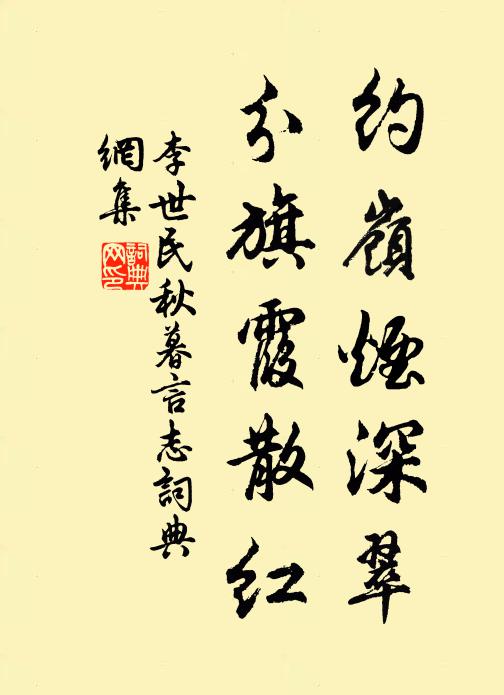 约嶺煙深翠
分旗霞散红
李世民秋暮言志詞典
網集
詞典
网印